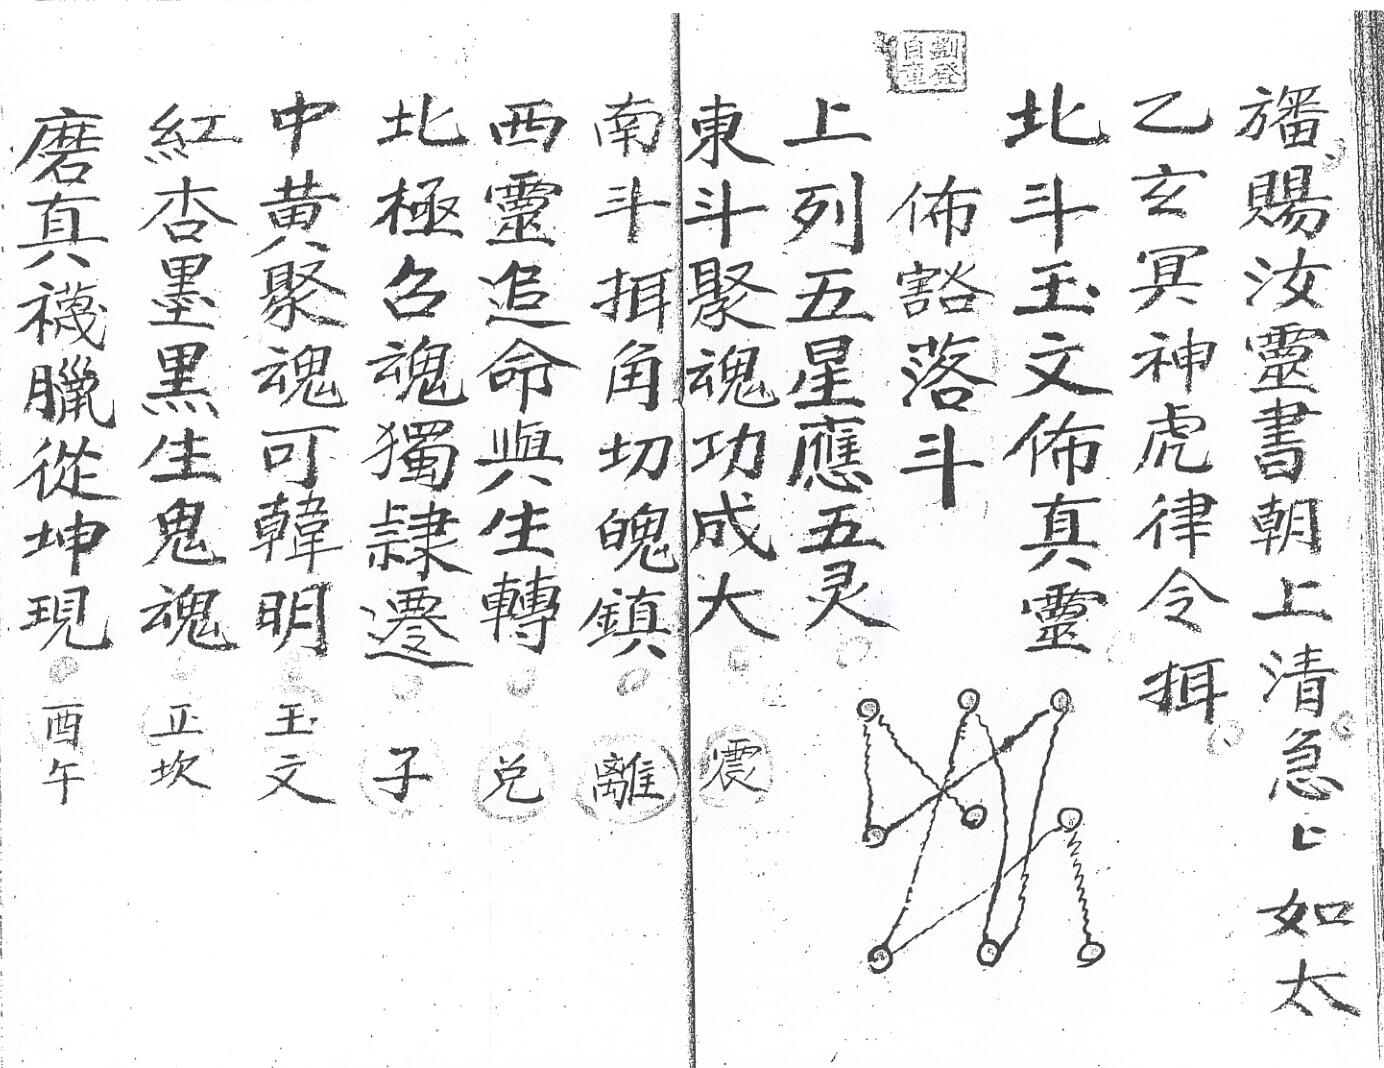 旛賜汝靈書朝上清急㆔如太
乙玄冥神虎律令挕
北斗玉文佈真靈
佈豁落斗
上列五星應五灵
東斗聚魂功成大 震
南斗挕角切魄鎮 離
西靈追命與生轉 兌
北極召魂獨隸遷 子
中黄聚魂可韓明 玉文
紅杏墨黑生鬼魂 正坎
磨真襪臘從坤現 酉午